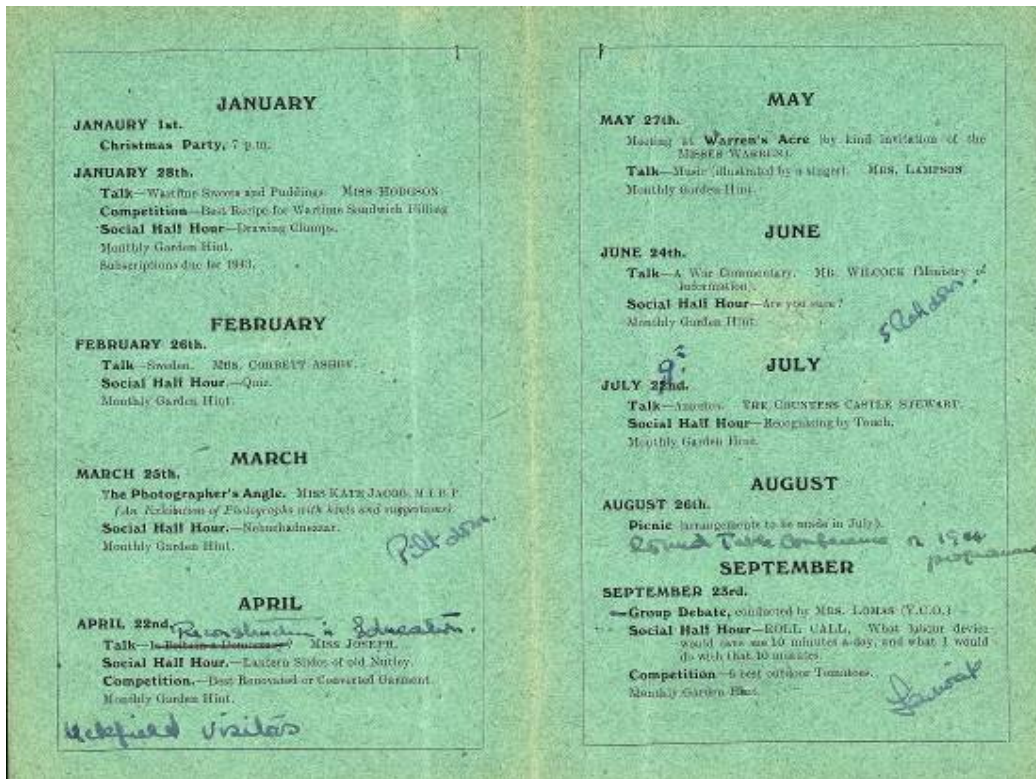 JANUARY
JANAURY 1st.
Christmas Party, 7 p.m.
JANUARY 28th.
Talk—Wartime Sweets and Puddings. MISS HODGSON
Competition—Best Recipe for Wartime Sandwich Filling
Social Half Hour—Drawing Clumps.
Monthly Garden Hint.
Subscriptions due for 1943.
FEBRUARY
FEBRUARY 26th.
Talk—Sweden. MRS. CORBETT ASHBY.
Social Half Hour.—Quiz.
Monthly Garden Hint.
MARCH
MARCH 25th.
The Photographer's Angle. MISS KATE JACOB,
(An Exhibition of Photographs with hints and suggestions).
Social Half Hour.—Nebuchadnezzar.
Monthly Garden Hint.
Piltdown.
APRIL
APRIL 22nd. Reconstruction in Education.
Talk—Is Britain a Democracy? MISS JOSEPH.
Social Half Hour.—Lantern Slides of old Nutley.
Competition.—Best Renovated or Converted Garment.
Monthly Garden Hint.
Uckfield Visitors
MAY
MAY 27th.
Meeting at Warren's Acre (by kind invitation of the
MISSES WARREN).
Talk—Music (illustrated by a singer). MRS. LAMPSON.
Monthly Garden Hint.
JUNE
JUNE 24th.
Talk—A War Commentary. MR. WILCOCK (Ministry of
Information).
Social Half Hour—Are you sure?
Monthly Garden Hint.
JULY
JULY 22nd.
Talk— THE COUNTESS CASTLE STEWART.
Social Half Hour—Recognising by Touch.
Monthly Garden Hint.
AUGUST
AUGUST 26th.
Picnic (arrangements to be made in July).
Round Table Conference 1944
programme
SEPTEMBER
SEPTEMBER 23rd.
Group Debate, conducted by MRS. LOMAS (V.C.O.)
Social Half Hour—ROLL CALL. What labour device
would save me 10 minutes a day, and what I would
do with that 10 minutes.
Competition—6 best outdoor Tomatoes.
Monthly Garden Hint.